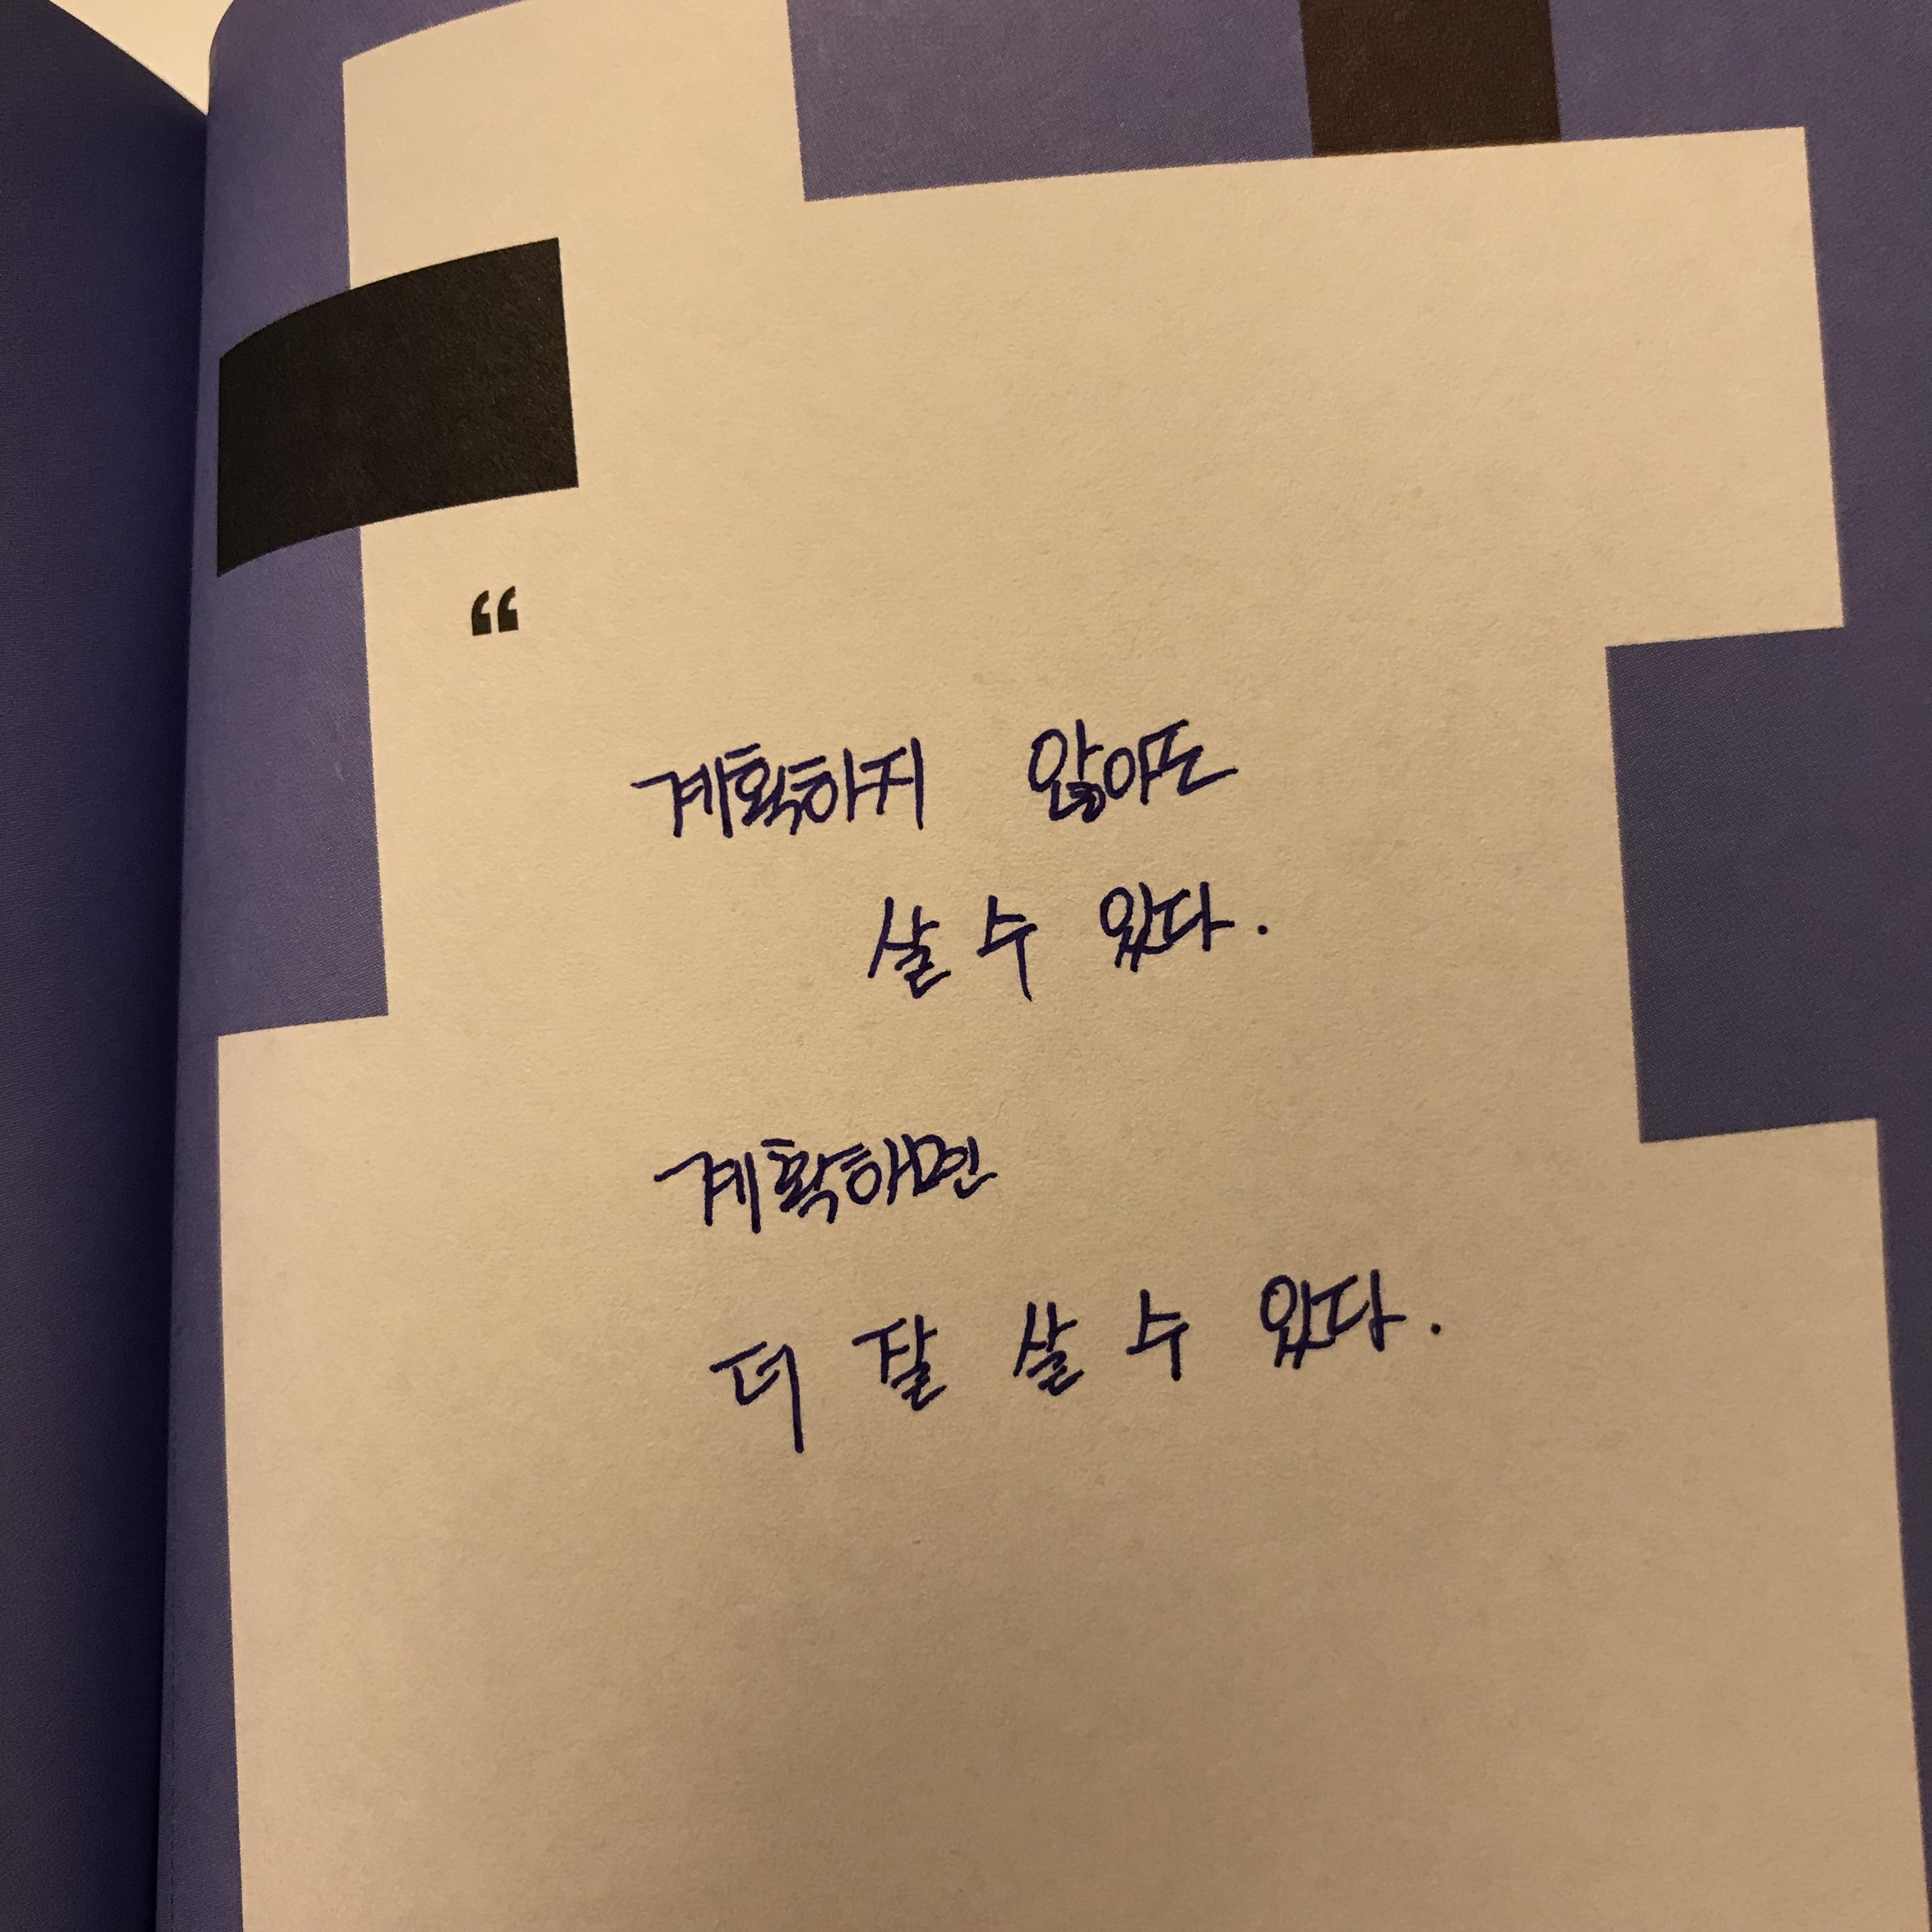 “
계획하지 않아도
살 수 있다.
계획하면
더 잘 살 수 있다.